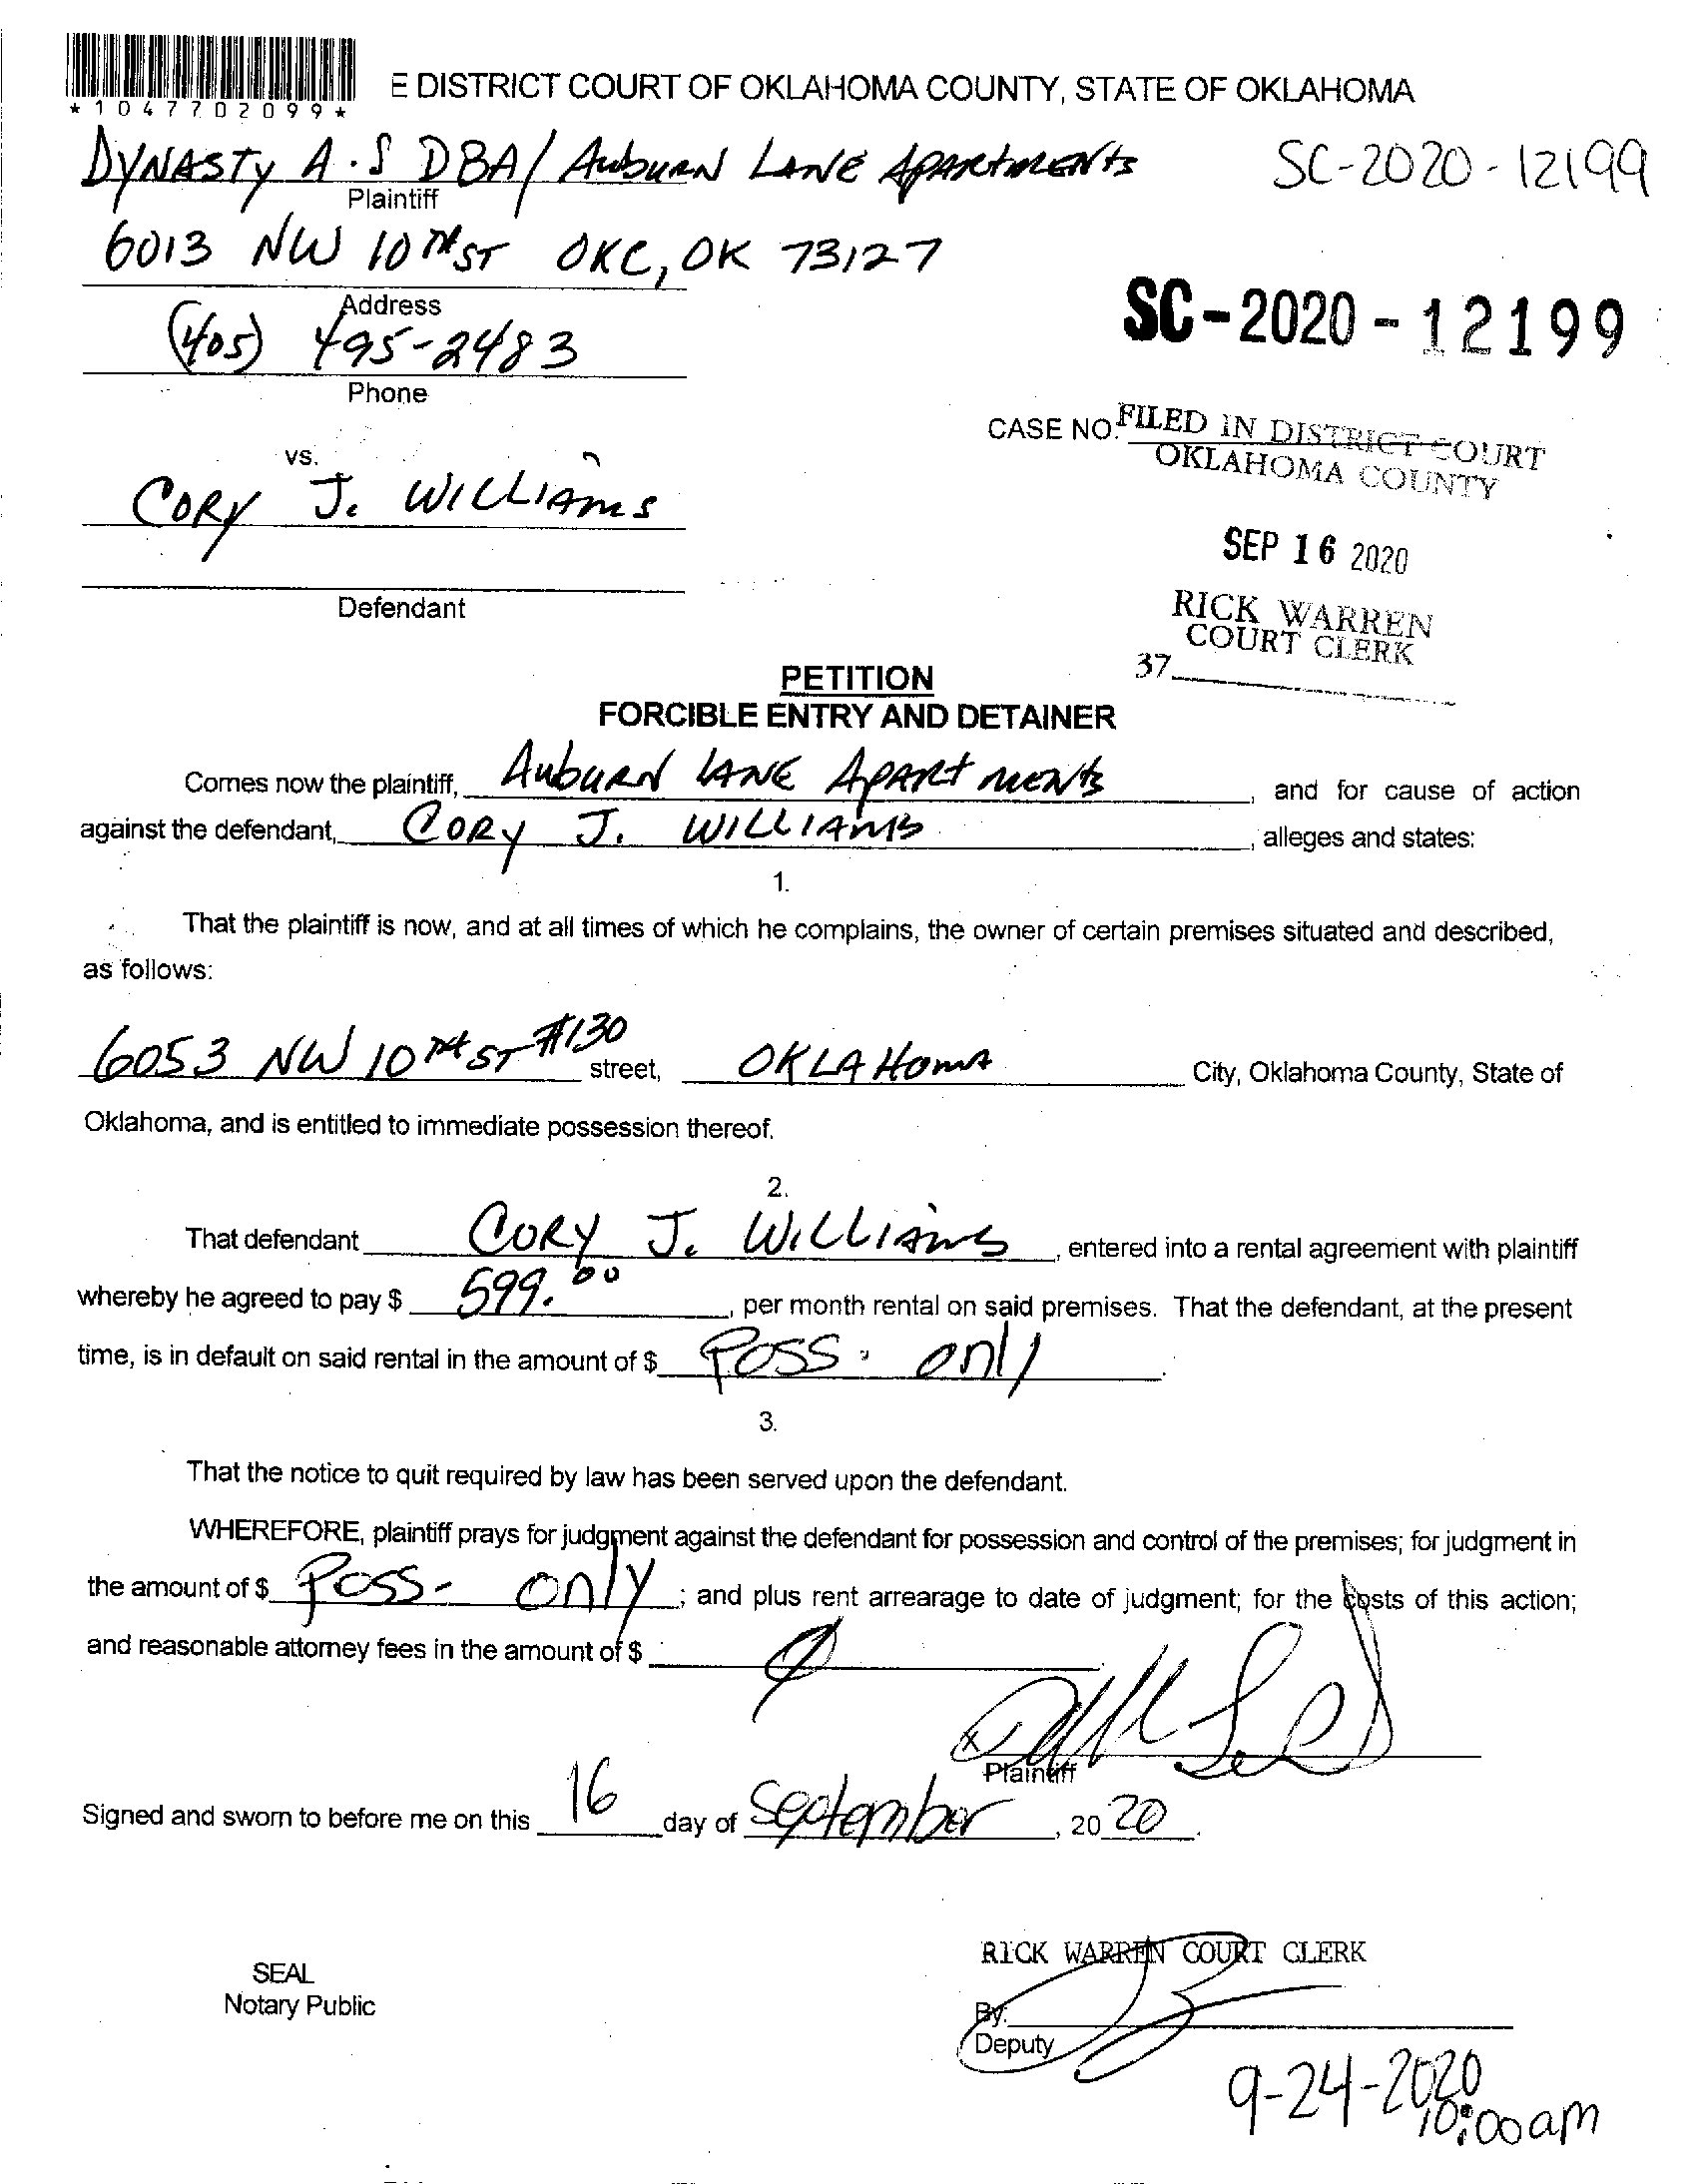 *1047702099*
E DISTRICT COURT OF OKLAHOMA COUNTY, STATE OF OKLAHOMA
DYNASTY A.S DBA/ AUBURN LANE APARTMENTS
SC-2020-12199
Plaintiff
6013 NW 10TH ST OKC, OK 73127
Address
SC-2020-12199
(405) 495-2483
Phone
CASE NO. FILED IN DISTRICT COURT
OKLAHOMA COUNTY
vs.
CORY J. WILLIAMS
SEP 16 2020
Defendant
RICK WARREN
COURT CLERK
37
PETITION
FORCIBLE ENTRY AND DETAINER
Comes now the plaintiff, AUBURN LANE APARTMENTS, and for cause of action
against the defendant, CORY J. WILLIAMS, alleges and states:
1.
That the plaintiff is now, and at all times of which he complains, the owner of certain premises situated and described,
as follows:
6053 NW 10TH ST #130 street, OKLAHOMA City, Oklahoma County, State of
Oklahoma, and is entitled to immediate possession thereof.
2.
That defendant CORY J. WILLIAMS, entered into a rental agreement with plaintiff
whereby he agreed to pay $ 599.00, per month rental on said premises. That the defendant, at the present
time, is in default on said rental in the amount of $ Poss. only.
3.
That the notice to quit required by law has been served upon the defendant.
WHEREFORE, plaintiff prays for judgment against the defendant for possession and control of the premises; for judgment in
the amount of $ Poss- only; and plus rent arrearage to date of judgment; for the costs of this action;
and reasonable attorney fees in the amount of $
X
Plaintiff
Signed and sworn to before me on this 16 day of September, 20 20.
RICK WARREN COURT CLERK
SEAL
Notary Public
By:
Deputy
9-24-2020
10:00am